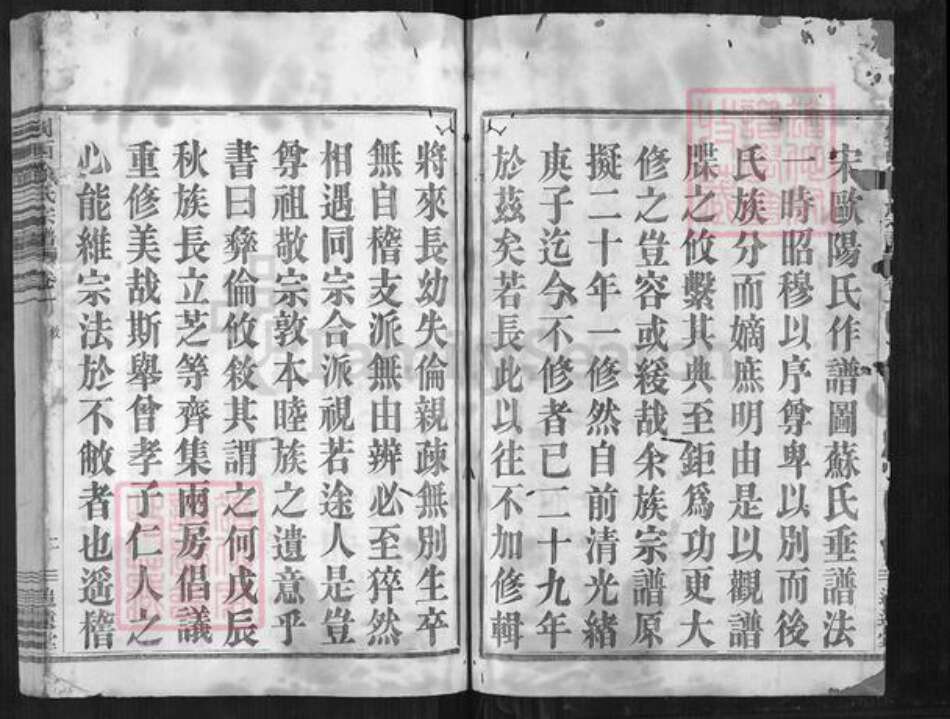 宋歐陽氏作譜圖蘇氏垂譜法
一時昭穆以序尊卑以別而後
氏族分而嫡庶明由是以觀譜
牒之攸繫其典至鉅爲功更大
修之豈容或緩哉余族宗譜原
擬二十年一修然自前清光緒
庚子迄今不修者已二十九年
於茲矣若長此以往不加修輯
將來長幼失倫親疎無別生卒
無自稽支派無由辨必至猝然
相遇同宗合派視若途人是豈
尊祖敬宗敦本睦族之遺意乎
書曰彝倫攸敘其謂之何戊辰
秋族長立芝等齊集兩房倡議
重修美哉斯舉曾孝子仁人之
必能維宗法於不敝者也遥稽